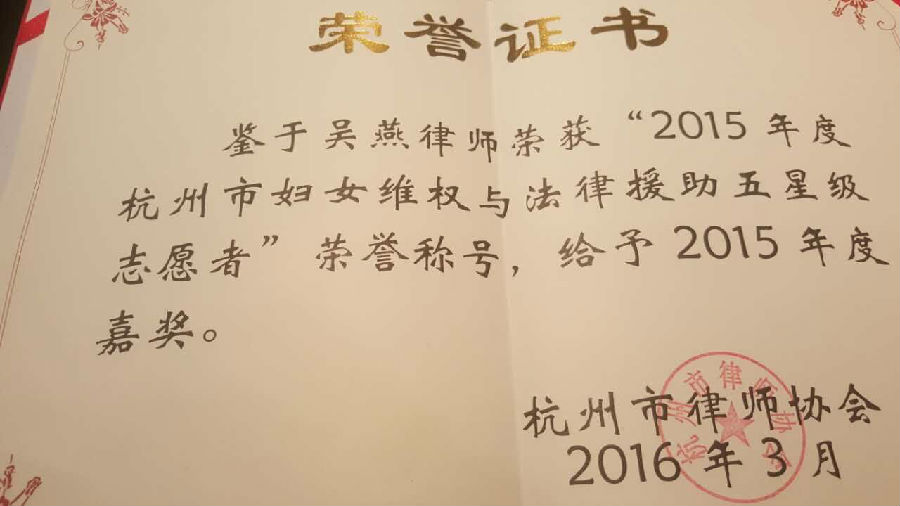 荣誉证书
鉴于吴燕律师荣获“2015年度
杭州市妇女维权与法律援助五星级
志愿者”荣誉称号，给予2015年度
嘉奖。
杭州市律师协会
2016年3月
杭州市律师协会